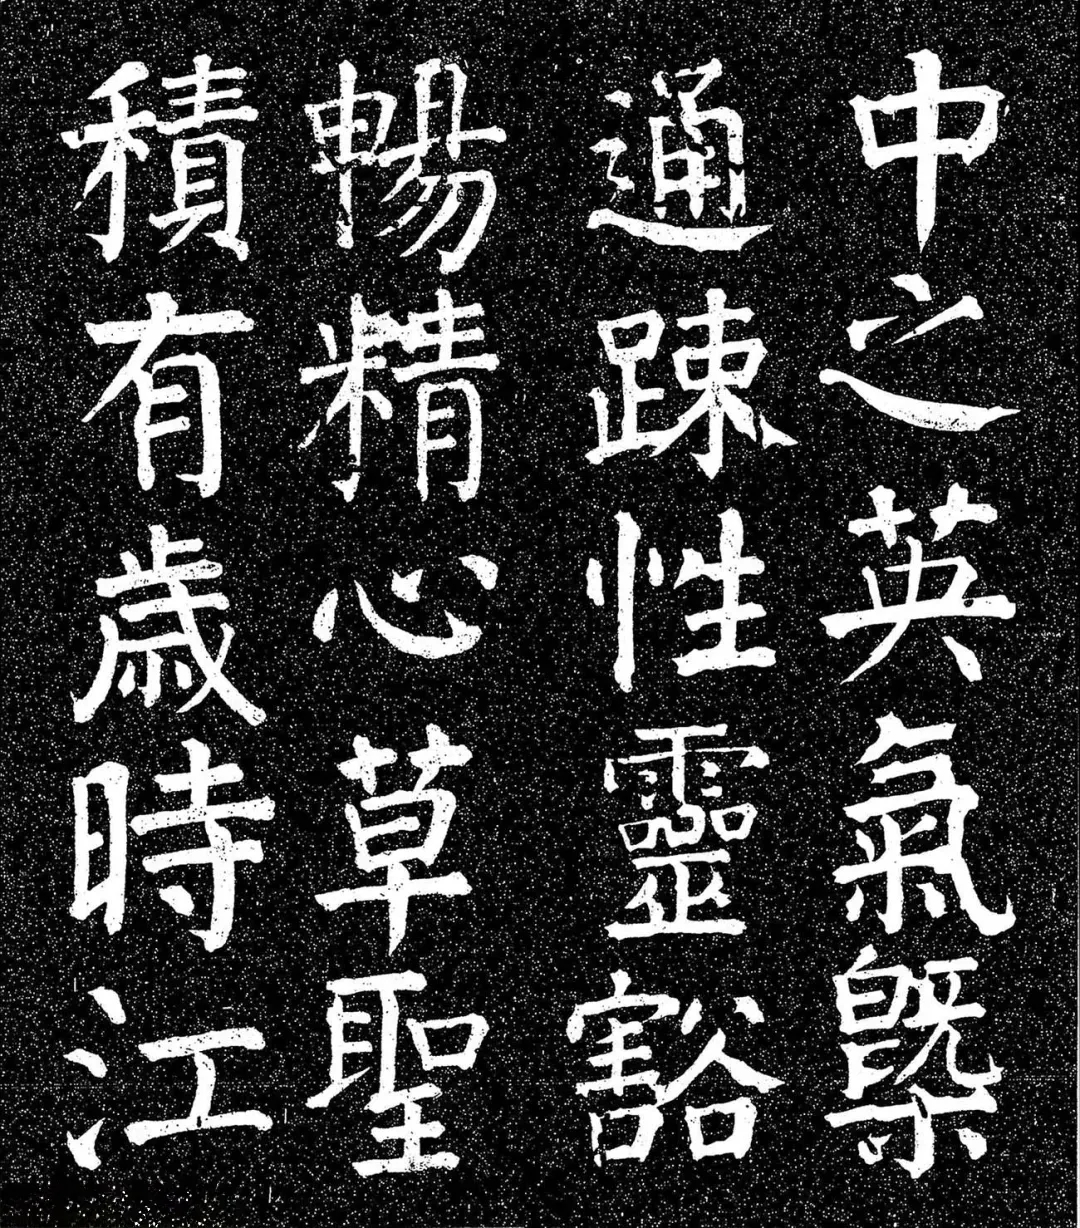 中之英氣槩
通踈性靈豁
暢精心草聖
積有歳時江